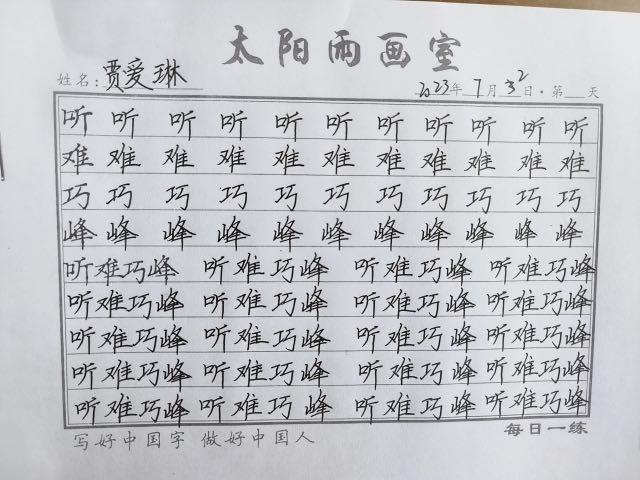 太阳雨画室
姓名:贾爱琳 2023年7月32日·第 天
听 听 听 听 听 听 听 听 听 听 听
难 难 难 难 难 难 难 难 难 难 难
巧 巧 巧 巧 巧 巧 巧 巧 巧 巧 巧
峰 峰 峰 峰 峰 峰 峰 峰 峰 峰 峰
听难巧峰 听难巧峰 听难巧峰 听难巧峰
听难巧峰 听难巧峰 听难巧峰 听难巧峰
听难巧峰 听难巧峰 听难巧峰 听难巧峰
听难巧峰 听难巧峰 听难巧峰 听难巧峰
听难巧峰 听难巧峰 听难巧峰 听难巧峰
写好中国字 做好中国人 每日一练